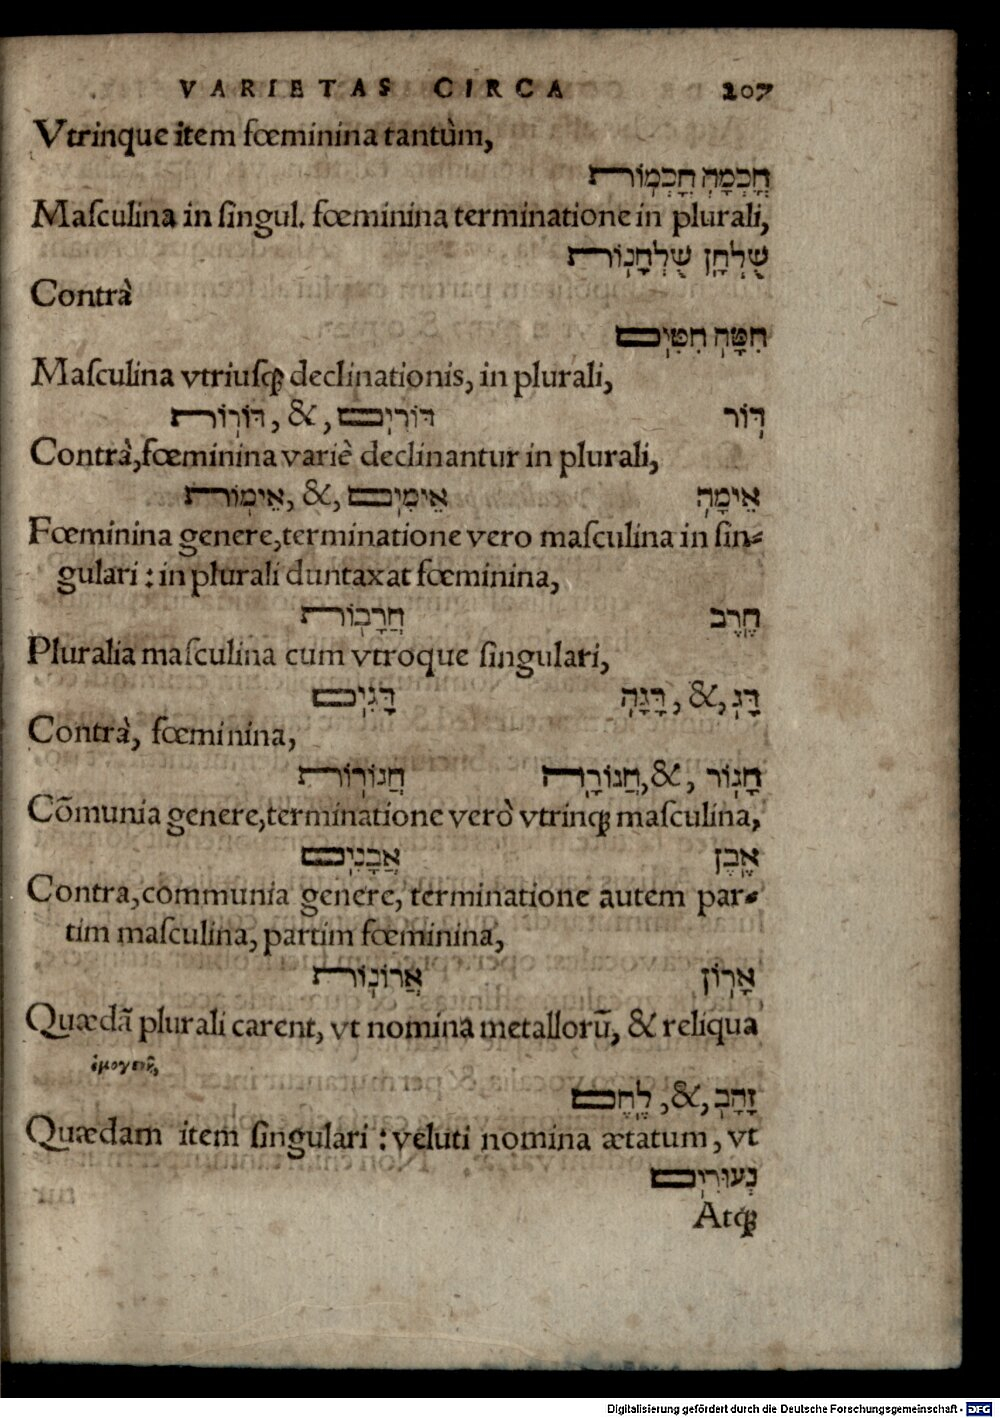 VARIETAS CIRCA 207
Vtrinque item fœminina tantùm,
חָכְמָה חָכְמוֹת
Maſculina in ſingul. fœminina terminatione in plurali,
שֻׁלְחָן שֻׁלְחָנוֹת
Contrà
חִטָּה חִטִּים
Maſculina vtriuſq́ꝫ declinationis, in plurali,
דּוֹר דּוֹרִים, &, דּוֹרוֹת
Contrà, fœminina variè declinantur in plurali,
אֵימָה אֵימִים, &, אֵימוֹת
Fœminina genere, terminatione vero maſculina in ſin-
gulari : in plurali duntaxat fœminina,
חֶרֶב חֲרָבוֹת
Pluralia maſculina cum vtroque ſingulari,
דָּג, &, דָּגָה דָּגִים
Contrà, fœminina,
חָגוֹר, &, חֲגוֹרָה חֲגוֹרוֹת
Cõmunia genere, terminatione verò vtrinqꝫ maſculina,
אֶבֶן אֲבָנִים
Contra, communia genere, terminatione autem par-
tim maſculina, partim fœminina,
אָרוֹן אֲרוֹנוֹת
Quædã plurali carent, vt nomina metallorũ, & reliqua
ὁμογενῆ,
זָהָב, &, לֶחֶם
Quædam item ſingulari : veluti nomina ætatum, vt
נְעוּרִים
Atq́ꝫ
Digitalisierung gefördert durch die Deutsche Forschungsgemeinschaft - DFG